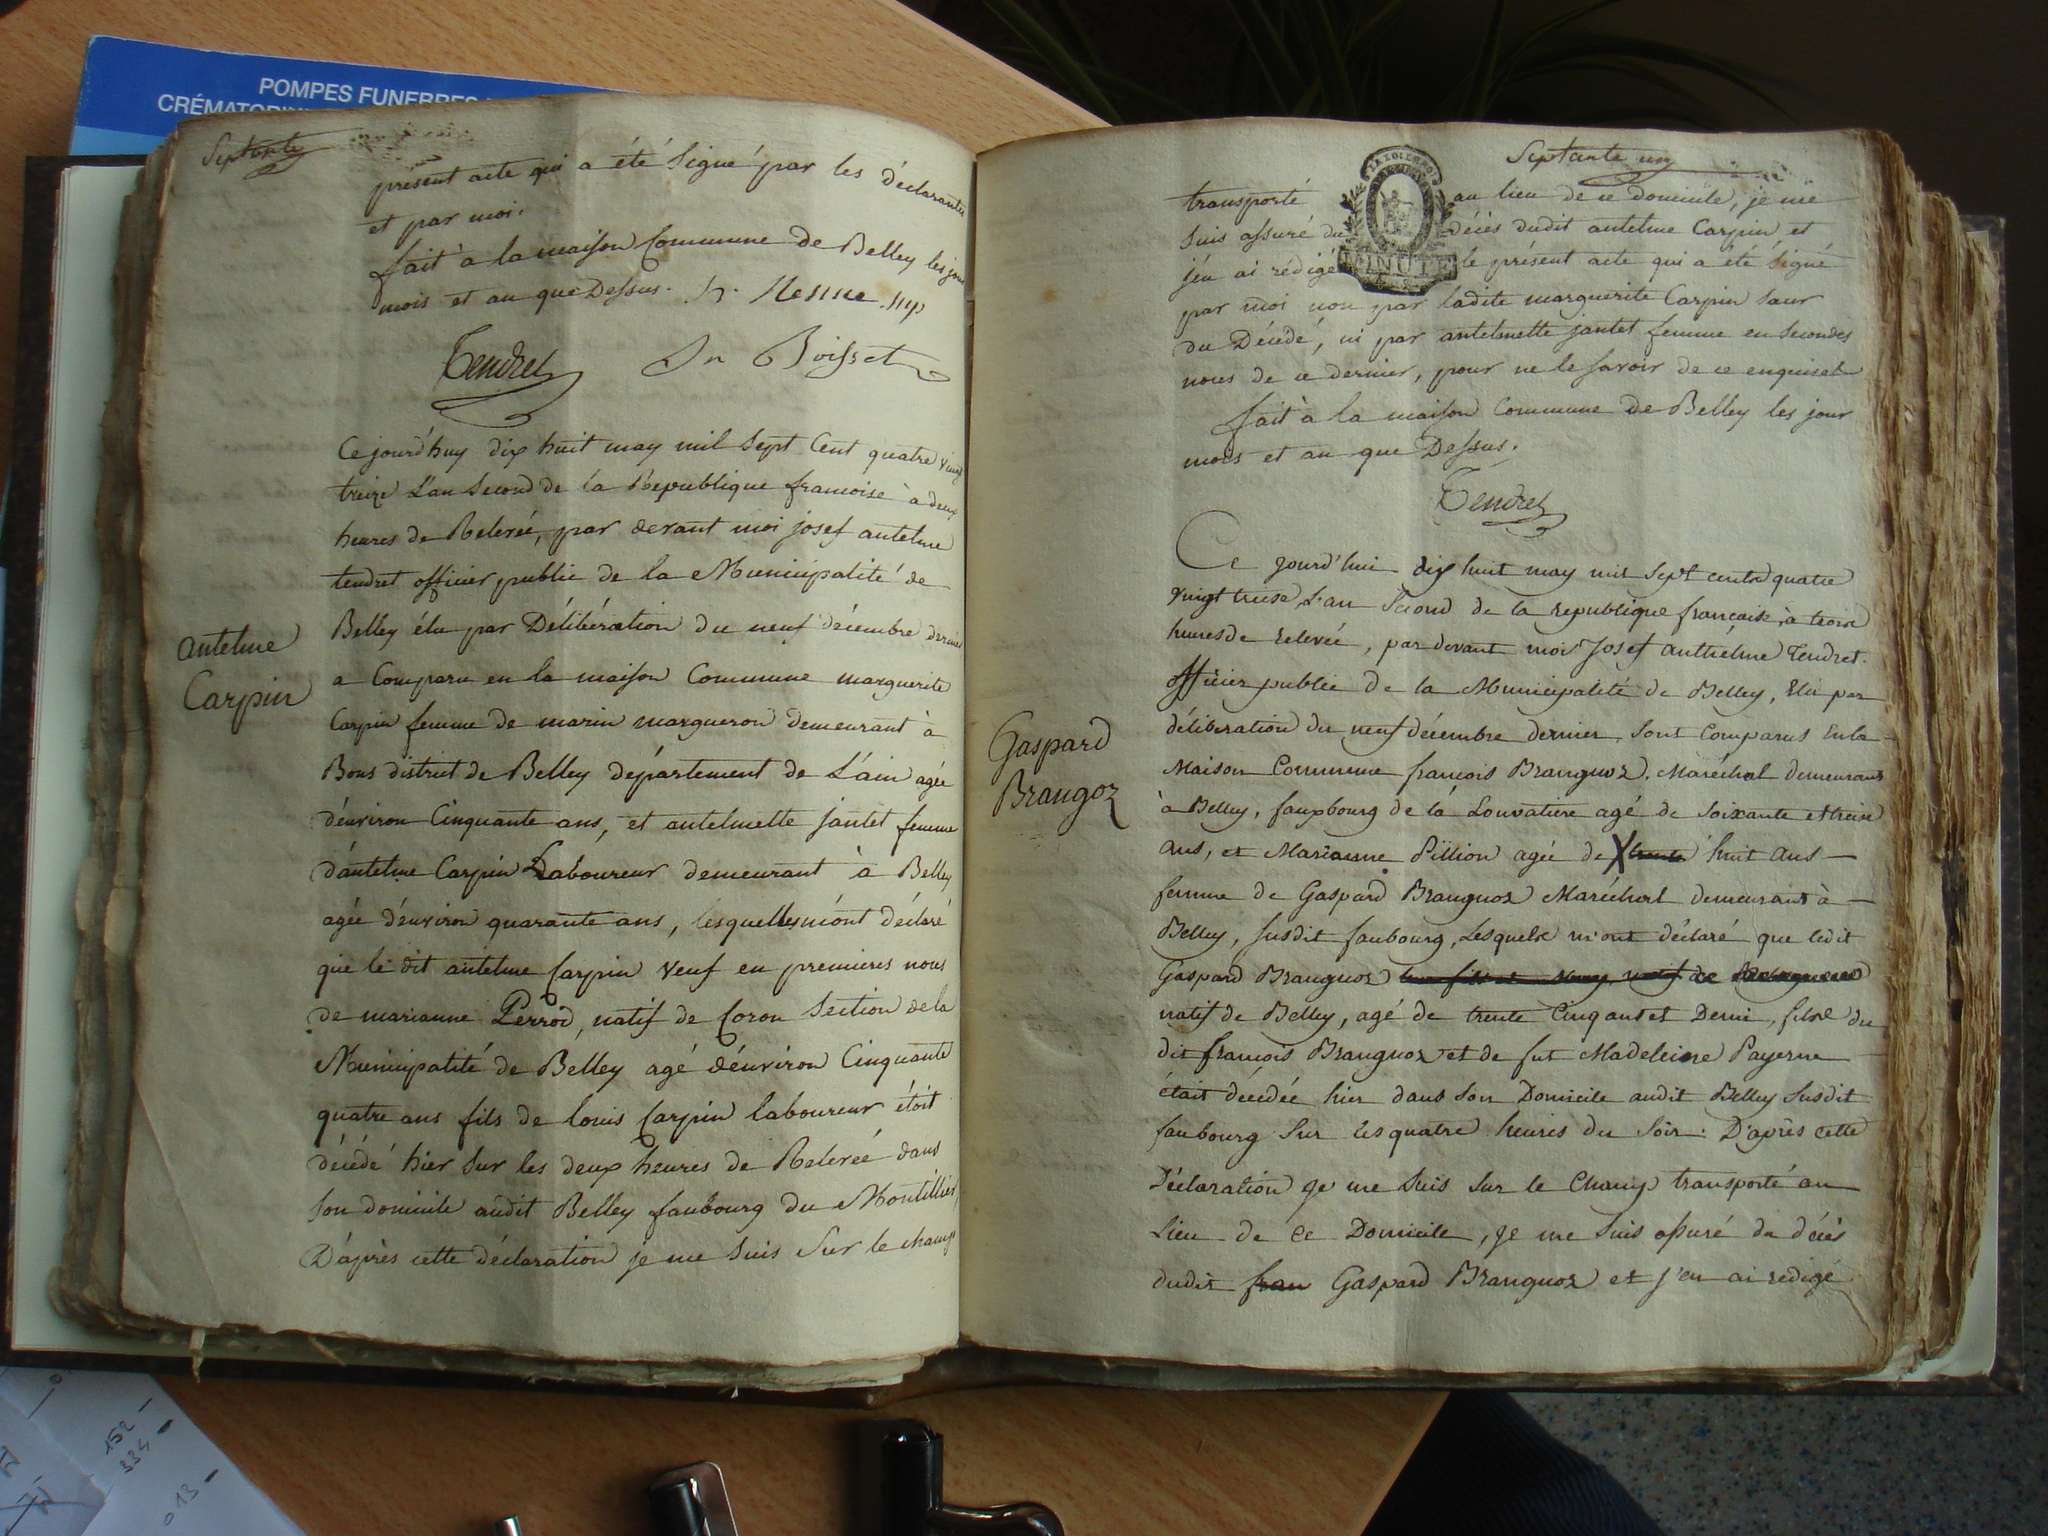 POMPES FUNEBRES
CRÉMATORIUM
Septante
présent acte qui a été signé par les déclarantes
et par moi.
fait à la maison Commune de Belley les jour
mois et an que Dessus.
Tendret
Boisset
Ce jourd'huy dix huit may mil sept Cent quatre vingt
treize L'an Second de la Republique francoise à deux
heures de Relevée, par devant moi josef antelme
tendret officier public de la Municipalité de
Belley élu par Délibération du neuf décembre dernier
antelme
Carpin
a Comparu en la maison Commune marguerite
Carpin femme de marin margueron demeurant à
Bons district de Belley département de L'ain agée
d'énviron Cinquante ans, et antelmette jantet femme
d'antelme Carpin Laboureur demeurant à Belley
agée d'énviron quarante ans, lesquelles m'ont déclaré
que le dit antelme Carpin veuf en premieres noces
de marianne Perrod, natif de Coron Section de la
Municipalité de Bélley agé d'énviron Cinquante
quatre ans fils de louis Carpin laboureur étoit
décédé hier sur les deux heures de Relevée dans
son domicile audit Belley faubourg du Montillier,
D'après cette déclaration je me suis sur le champ
Septante un
LA LOI LE ROI
MINUTE
transporté au lieu de ce domicile, je me
suis assuré du décès dudit antelme Carpin et
j'en ai rédigé le présent acte qui a été signé
par moi non par ladite marguerite Carpin sœur
du Décédé, ni par antelmette jantet femme en secondes
noces de ce dernier, pour ne le savoir de ce enquises
fait à la maison Commune de Belley les jour
mois et an que Dessus.
Tendret
Ce jourd'hui dix huit may mil sept cents quatre
vingt treise, L'an Second de la republique française, à trois
heures de relevée, par devant moi Josef Anthelme Tendret
officier public de la Municipalité de Belley, Elu par
déliberation du neuf décembre dernier, sont Comparus En la
Gaspard
Brangoz
Maison Commune françois Branguoz, Maréchal demeurant
à Belley, fauxbourg de la Louvatiere agé de soixante et treise
ans, et Marianne Pillion agée de trente huit ans
femme de Gaspard Branguoz Maréchal demeurant à
Belley, susdit faubourg, Lesquels m'ont déclaré que ledit
Gaspard Branguoz
natif de Belley, agé de trente Cinq ans et Demi, fils du
dit françois Branguoz et de fut Madeleine Payerne
était décédé hier dans son Domicile audit Belley susdit
faubourg sur Les quatre heures du soir. D'après cette
Déclaration je me suis sur le Champ transporté au
Lieu de ce Domicile, je me suis assuré du décès
dudit fran Gaspard Branguoz et j'en ai redigé
152 -
334 -
013 -